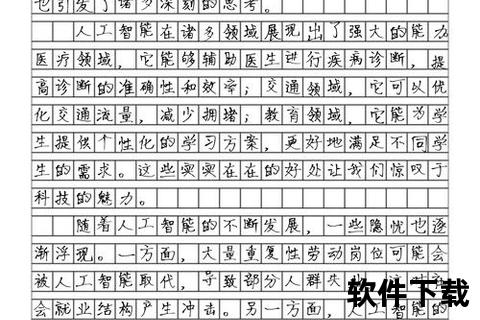 也引发了诸多深刻的思考。
人工智能在诸多领域展现出了强大的能力
医疗领域，它能够辅助医生进行疾病诊断，提
高诊断的准确性和效率；交通领域，它可以优
化交通流量，减少拥堵；教育领域，它能为学
生提供个性化的学习方案，更好地满足不同学
生的需求。这些实实在在的好处让我们惊叹于
科技的魅力。
随着人工智能的不断发展，一些隐忧也逐
渐浮现。一方面，大量重复性劳动岗位可能会
被人工智能取代，导致部分人群失
会就业结构产生冲击。另一方面，人工智能的
软件下载